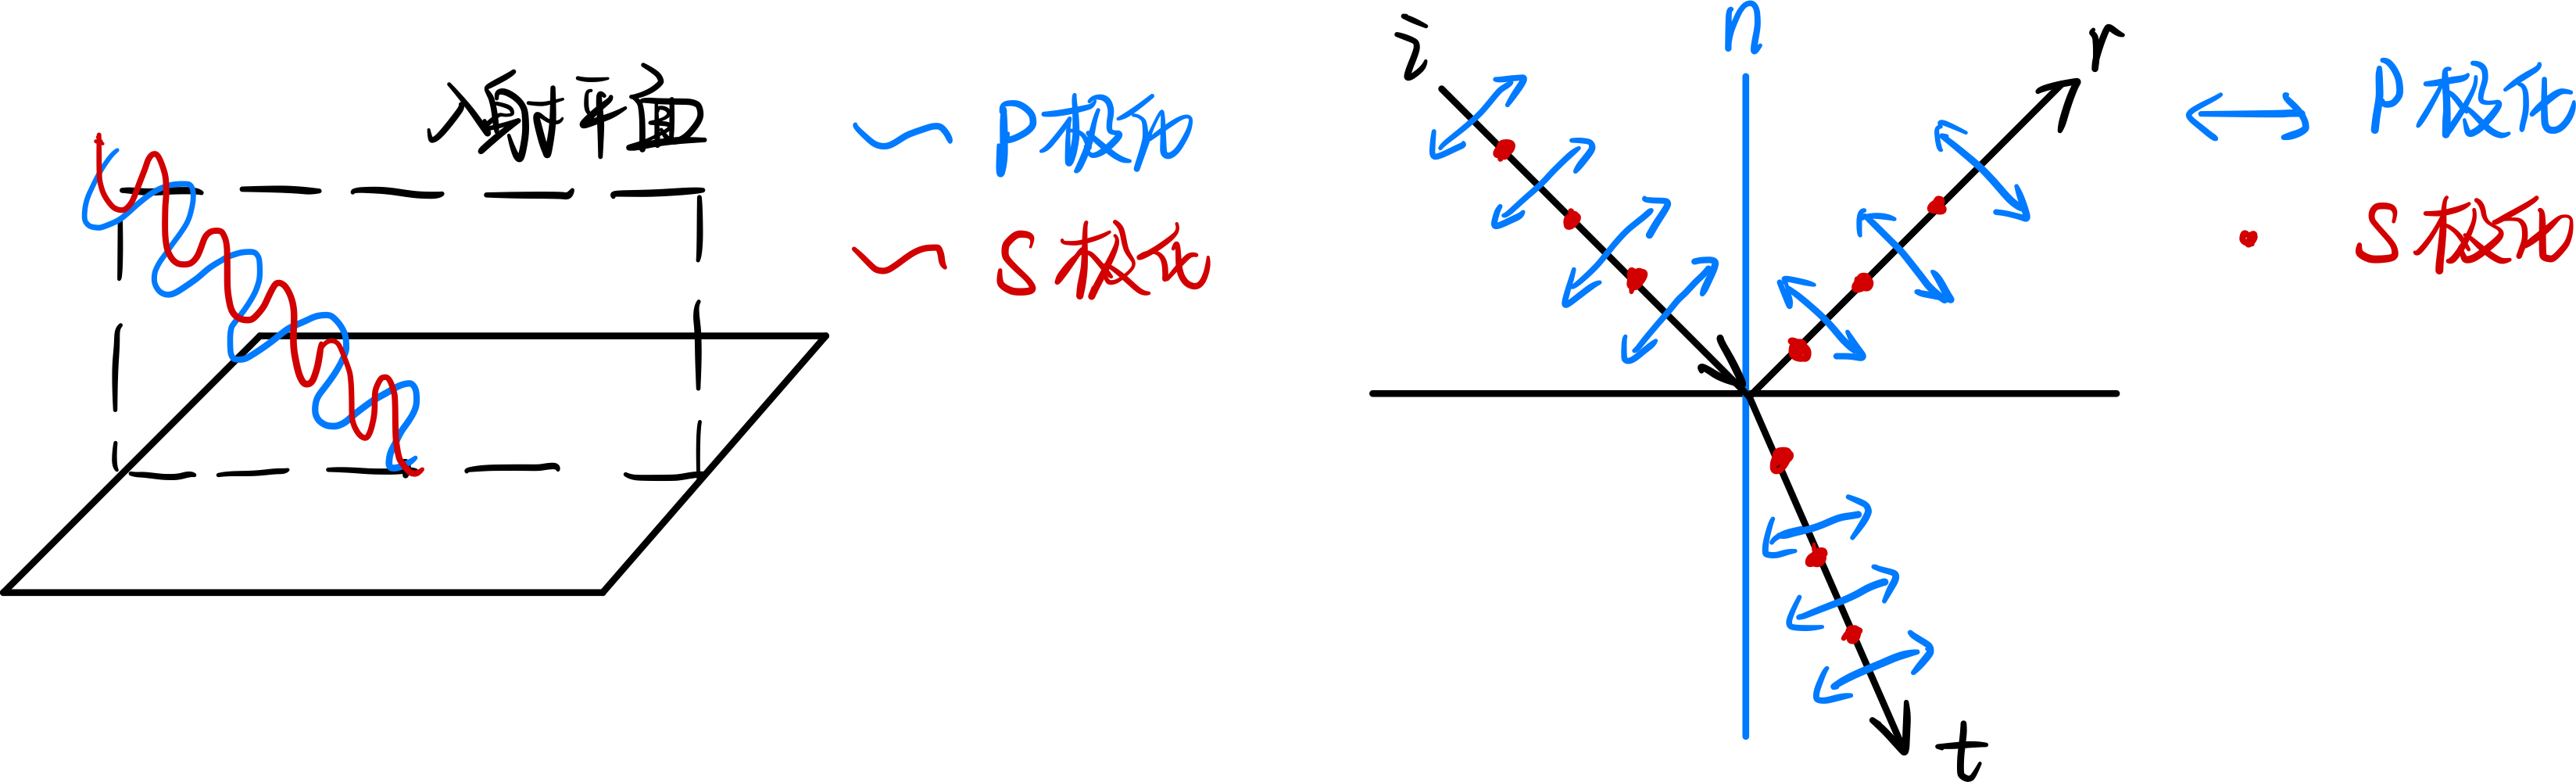 入射平面
P极化
S极化
i
n
r
P极化
S极化
t